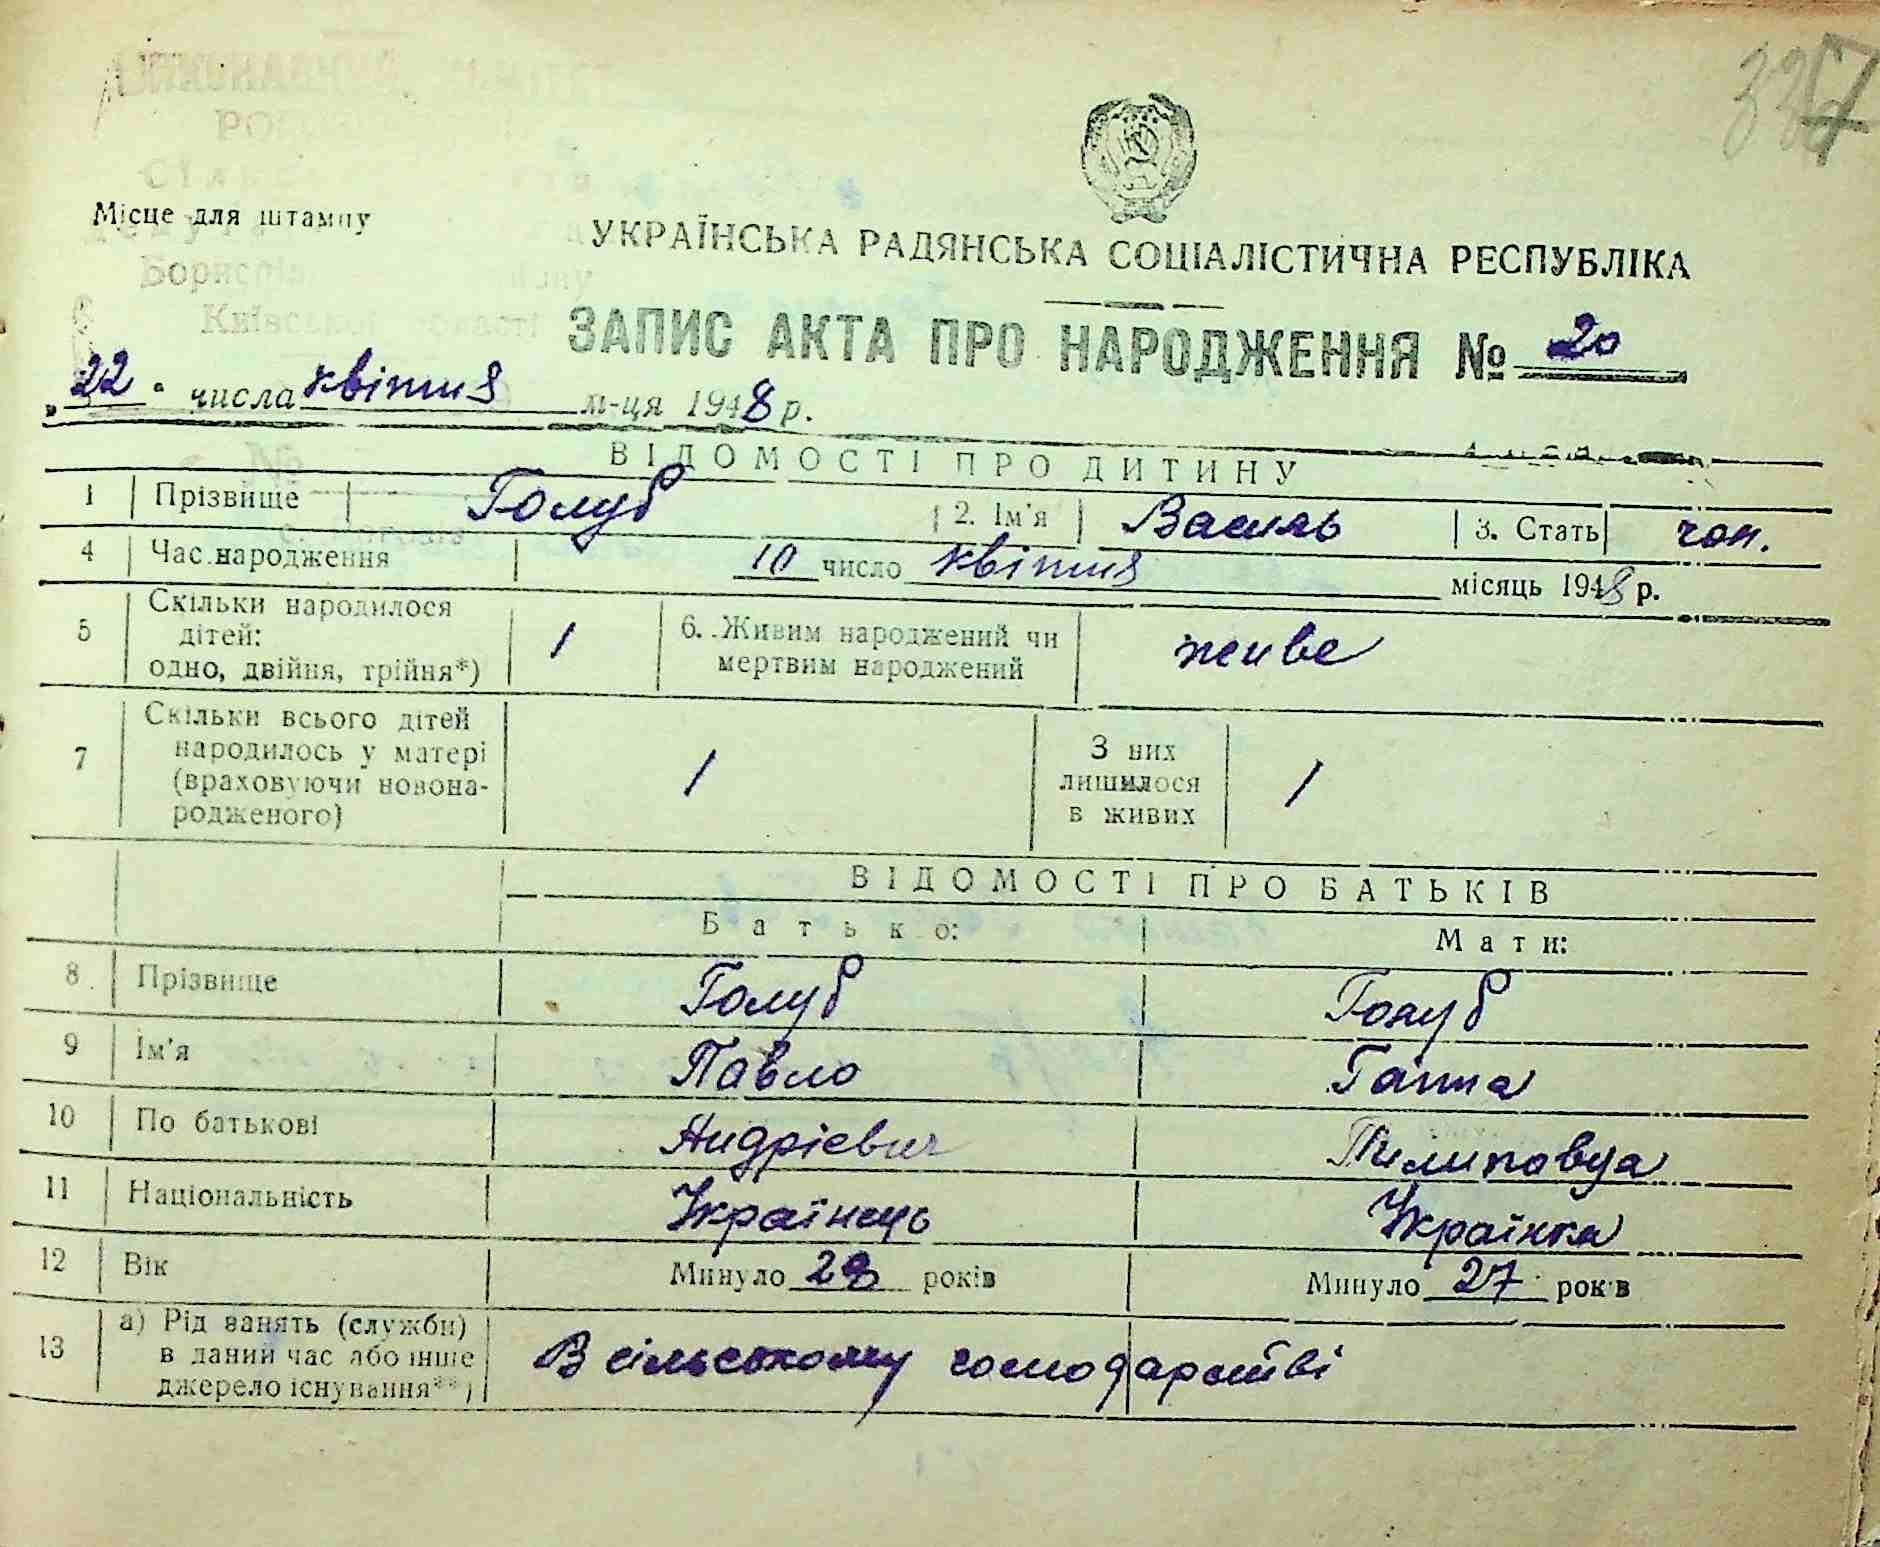 337
Місце для штампу
Бориспів
Київської області
УКРАЇНСЬКА РАДЯНСЬКА СОЦІАЛІСТИЧНА РЕСПУБЛІКА
ЗАПИС АКТА ПРО НАРОДЖЕННЯ № 20
„22" числа квітня м-ця 1948 р.
ВІДОМОСТІ ПРО ДИТИНУ
1 Прізвище Голуб 2. Ім'я Василь 3. Стать чол.
4 Час народження 10 число квітня місяць 1948 р.
5 Скільки народилося дітей: одно, двійня, трійня*) 1 6. Живим народжений чи мертвим народжений живе
7 Скільки всього дітей народилось у матері (враховуючи новонародженого) 1 З них лишилося в живих 1
ВІДОМОСТІ ПРО БАТЬКІВ
Батько: Мати:
8 Прізвище Голуб Голуб
9 Ім'я Павло Ганна
10 По батькові Андрієвич Пилиповна
11 Національність Українець Українка
12 Вік Минуло 28 років Минуло 27 років
13 а) Рід занять (служби) в даний час або інше джерело існування**) В сільському господарстві